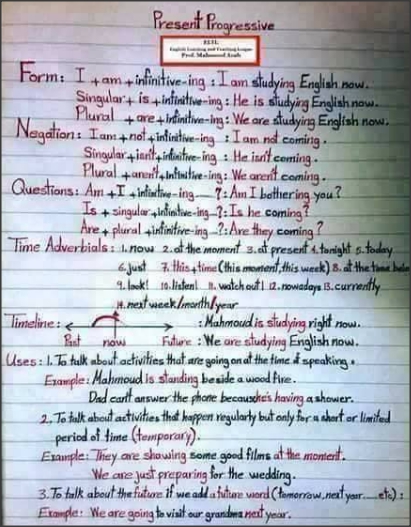 Present Progressive
ELTL
English Learning and Teaching League
Prof. Mahmoud Arafa
Form: I + am + infinitive-ing : I am studying English now.
Singular + is + infinitive-ing : He is studying English now.
Plural + are + infinitive-ing : We are studying English now.
Negation: I am + not + infinitive-ing : I am not coming.
Singular + isn't + infinitive-ing : He isn't coming.
Plural + aren't + infinitive-ing : We aren't coming.
Questions: Am + I + infinitive-ing ....? : Am I bothering you?
Is + singular + infinitive-ing ...? : Is he coming?
Are + plural + infinitive-ing ...? : Are they coming?
Time Adverbials: 1. now 2. at the moment 3. at present 4. tonight 5. today
6. just 7. this + time (this moment, this week) 8. at the time
9. look! 10. listen! 11. watch out! 12. nowadays 13. currently
14. next week/month/year
Timeline: : Mahmoud is studying right now.
Past now Future : We are studying English now.
Uses: 1. To talk about activities that are going on at the time of speaking.
Example: Mahmoud is standing beside a wood fire.
Dad can't answer the phone because he's having a shower.
2. To talk about activities that happen regularly but only for a short or limited
period of time (temporary).
Example: They are showing some good films at the moment.
We are just preparing for the wedding.
3. To talk about the future if we add a future word (tomorrow, next year.....etc) :
Example: We are going to visit our grandma next year.